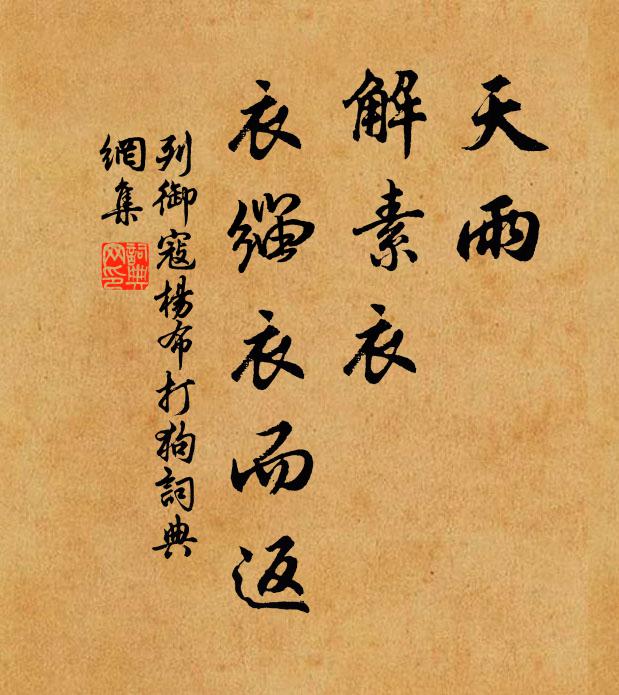 天雨
解素衣
衣缁衣而返
列御寇楊布打狗詞典
網集
詞典
网印